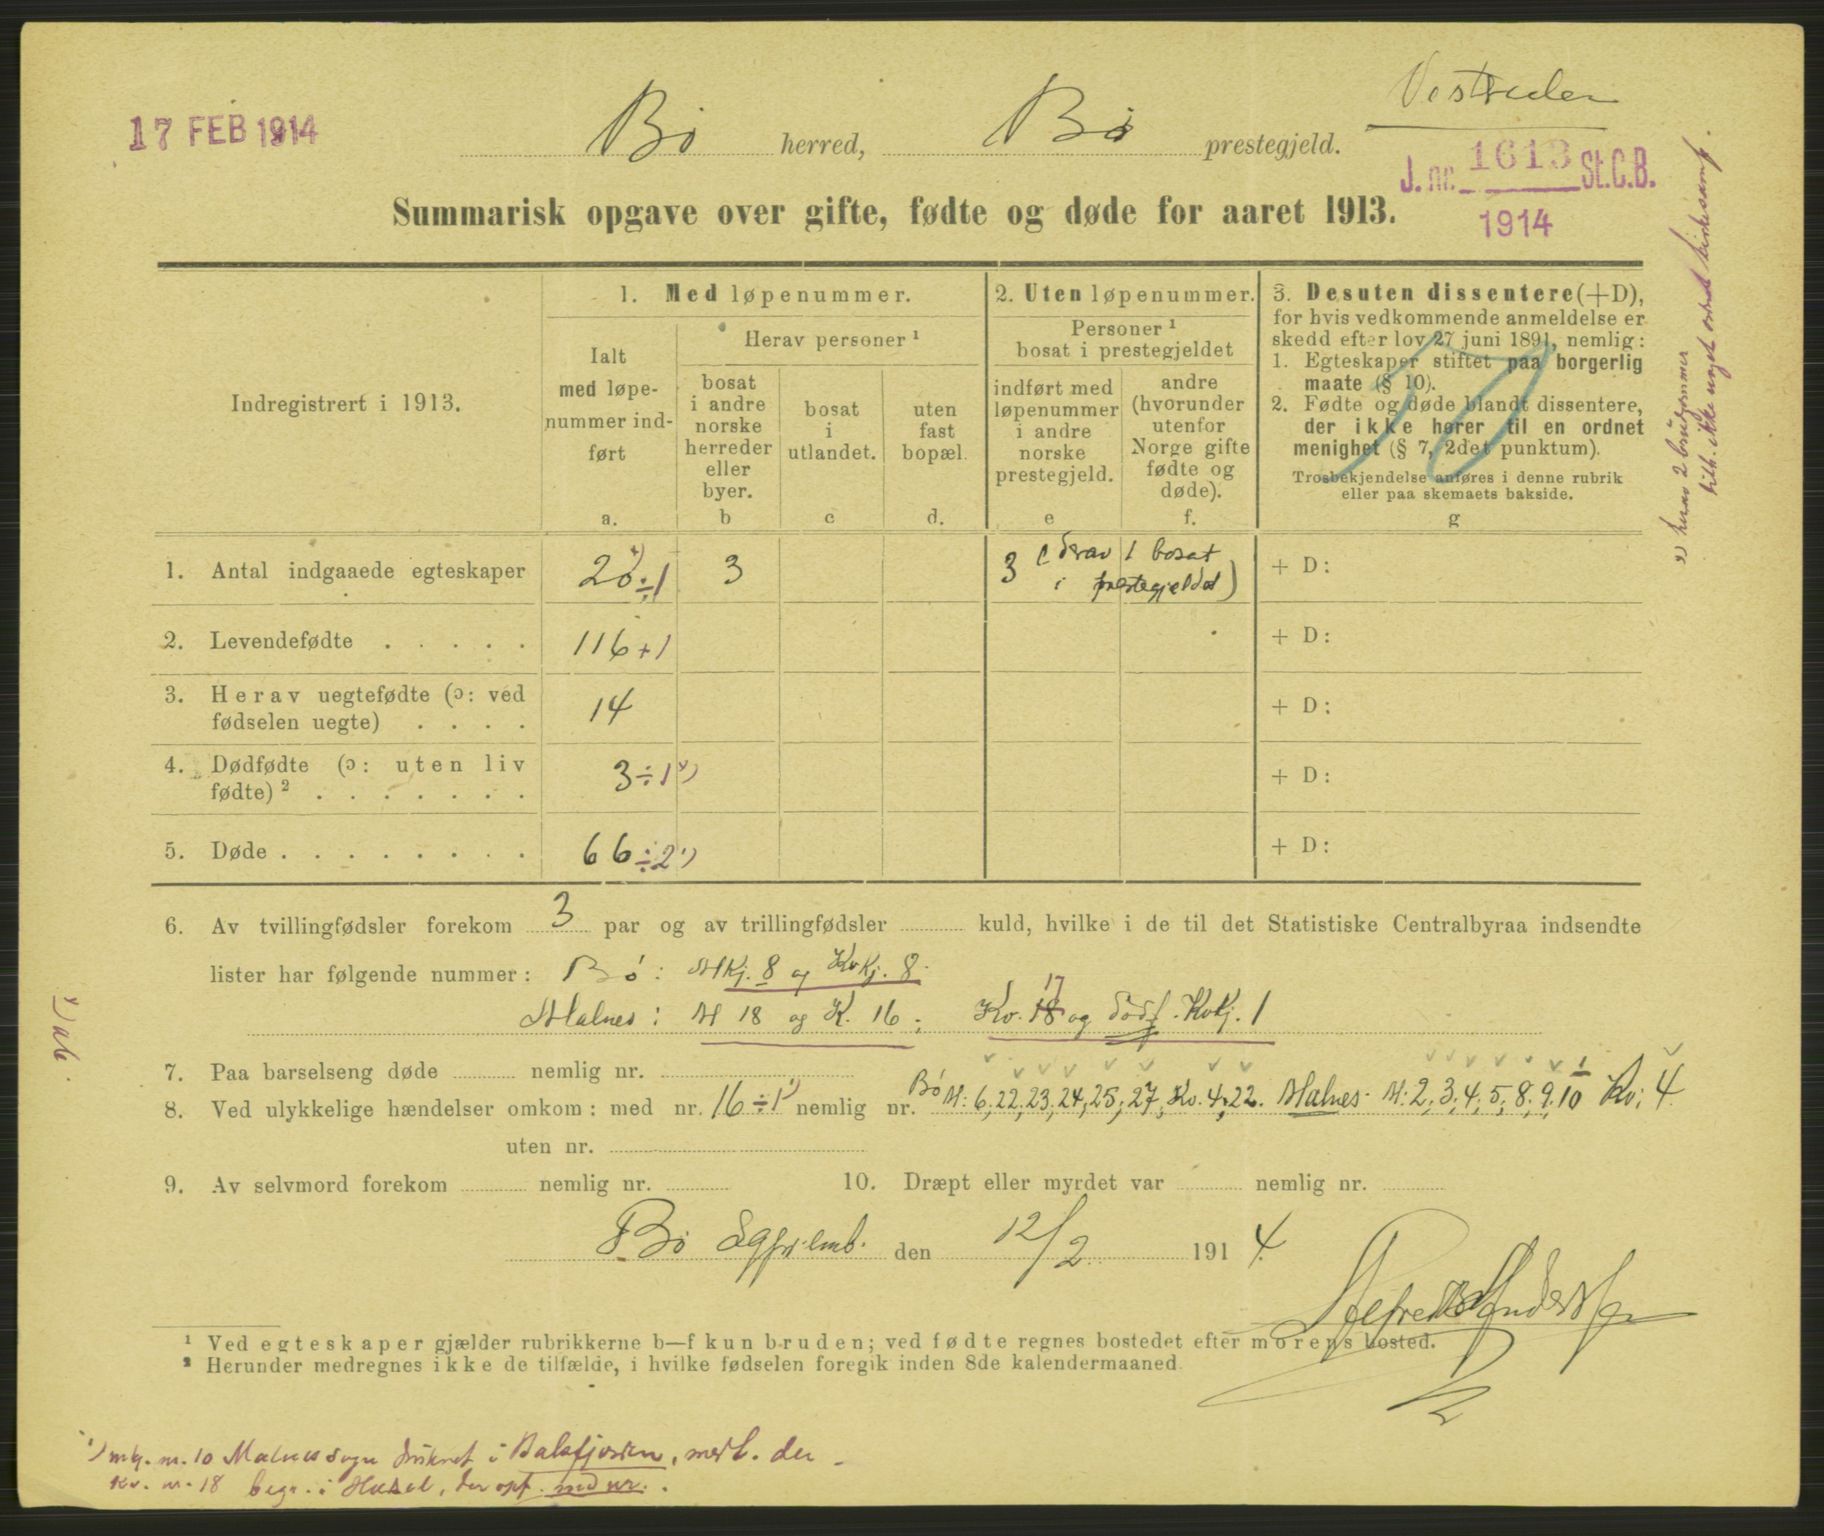 17 FEB 1914
Vestraalen
Bø herred, Bø prestegjeld.
J. nr. 1613 St.C.B.
1914
Summarisk opgave over gifte, fødte og døde for aaret 1913.
Indregistrert i 1913.
1. Med løpenummer.
Ialt
med løpe-
nummer ind-
ført
a.
Herav personer ¹
bosat
i andre
norske
herreder
eller
byer.
b
bosat
i
utlandet.
c
uten
fast
bopæl.
d.
2. Uten løpenummer.
Personer ¹
bosat i prestegjeldet
indført med
løpenummer
i andre
norske
prestegjeld.
e
andre
(hvorunder
utenfor
Norge gifte
fødte og
døde).
f.
3. Desuten dissentere (+D),
for hvis vedkommende anmeldelse er
skedd efter lov 27 juni 1891, nemlig:
1. Egteskaper stiftet paa borgerlig
maate (§ 10).
2. Fødte og døde blandt dissentere,
der ikke hører til en ordnet
menighet (§ 7, 2det punktum).
Trosbekjendelse anføres i denne rubrik
eller paa skemaets bakside.
g
1. Antal indgaaede egteskaper 20 ÷1 3 3 (derav 1 bosat + D:
i prestegjeldet)
2. Levendefødte . . . . . 116 +1 + D:
3. Herav uegtefødte (ɔ: ved
fødselen uegte) . . . . 14 + D:
4. Dødfødte (ɔ: uten liv
fødte) ² . . . . . . . 3 ÷1 + D:
5. Døde . . . . . . . . 66 ÷2 ¹) + D:
6. Av tvillingfødsler forekom 3 par og av trillingfødsler kuld, hvilke i de til det Statistiske Centralbyraa indsendte
lister har følgende nummer: Bø: Mkj. 8 og Kvkj. 8.
Malnes: M 18 og K. 16; Kv. 18 17 og dødf. Kvkj. 1
7. Paa barselseng døde nemlig nr.
8. Ved ulykkelige hændelser omkom: med nr. 16 ÷1 ¹) nemlig nr. Bø M: 6, 22, 23, 24, 25, 27, Kv. 4, 22. Malnes M: 2, 3, 4, 5, 8, 9, 10 Kv: 4.
uten nr.
9. Av selvmord forekom nemlig nr. 10. Dræpt eller myrdet var nemlig nr.
Bø den 12/2 1914.
¹ Ved egteskaper gjælder rubrikkerne b—f kun bruden; ved fødte regnes bostedet efter morens bosted.
² Herunder medregnes ikke de tilfælde, i hvilke fødselen foregik inden 8de kalendermaaned.
¹) mk. nr. 10 Malnes sogn druknet i Balsfjorden, medt. der
Kv. nr. 18 begr. i Hasel, der opf. med nr.